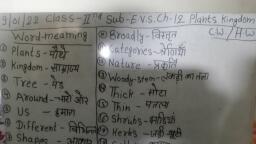 9/01/22 Class-IInd Sub-E.V.S. Ch-12 Plants Kingdom
C.W/H.W
Word-meaning
Plants-पौधे
Kingdom-साम्राज्य
Tree-पेड़
Around-चारों ओर
Us-हमारा
Different-विभिन्न
Shapes-आकार
Broadly-विस्तृत
Categories-श्रेणियाँ
Nature-प्रकृति
Woody-stem-लकड़ी का तना
Thick-मोटा
Thin-पतला
Shrubs-झाड़ियाँ
Herbs-जड़ी-बूटी